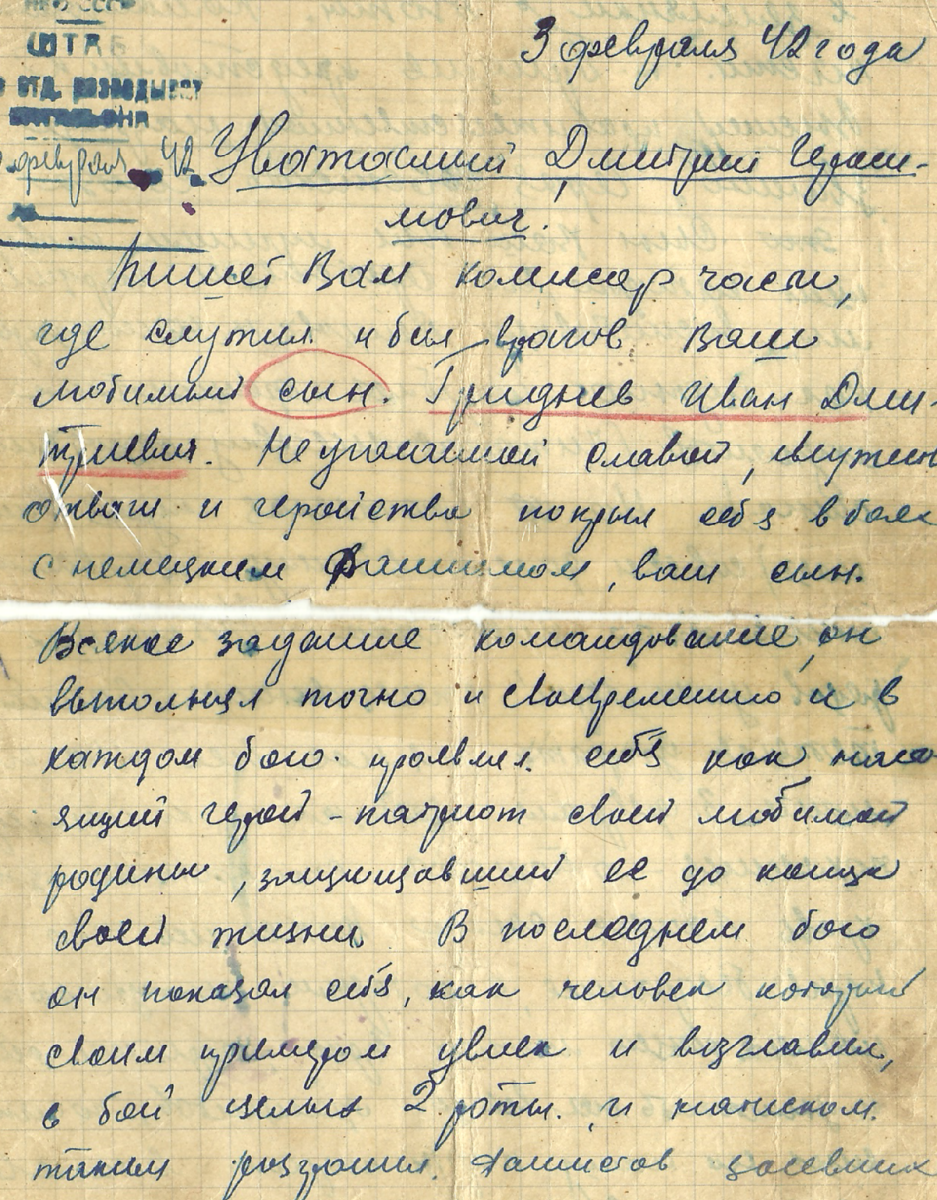 НКО СССР
ШТАБ
ОТД. РАЗВЕДЫВАТ
БАТАЛЬОНА
февраля 42
3 февраля 42 года
Уважаемый Дмитрий Гераси-
мович.
Пишет Вам комиссар части,
где служил и бил врагов Ваш
любимый сын. Гриднев Иван Дми-
триевич. Неугасаемой славой,
отваги и геройства покрыл себя в боях
с немецким фашизмом, ваш сын.
Всякое задание командование, он
выполнял точно и своевременно и в
каждом бою. проявил. себя как насто
ящий герой - патриот своей любимой
родины, защищавший ее до конца
своей жизни. В последнем бою
он показал себя, как человек который
своим примером увлек и возглавил,
в бой целых 2 роты. и натиском.
таким разгромил. фашистов засевших